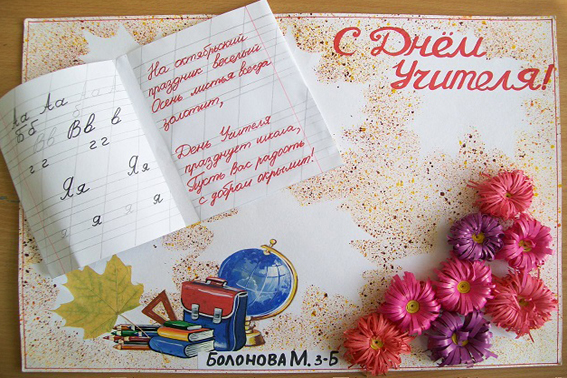 Аа Аа Аа
Бб Вв Вв в
гг гг
Яя Яя
я я
На октябрьский
праздник веселый
Осень листья всегда
золотит,
День Учителя
празднует школа,
Пусть Вас радость
с добром окрылит!
С Днём
Учителя!
БОЛОНОВА М. 3-Б